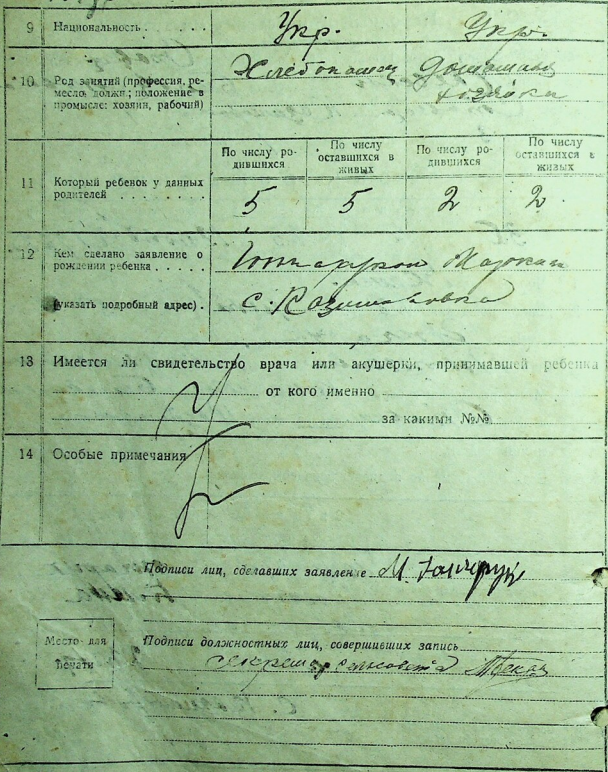 9 Национальность . . . . Укр. Укр.
10 Род занятий (профессия, ре-
месло, должн; положение в
промысле: хозяин, рабочий)
Хлебопашец
Домашняя
хозяйка
11 Который ребенок у данных
родителей . . . . . . . .
По числу ро-
дившихся
По числу
оставшихся в
живых
По числу ро-
дившихся
По числу
оставшихся в
живых
5 5 2 2
12 Кем сделано заявление о
рождении ребенка . . . . .
(указать подробный адрес) .
с.
13 Имеется ли свидетельство врача или акушерки, принимавшей ребенка
от кого именно
за какими №№
14 Особые примечания
Подписи лиц, сделавших заявление М. Гончарук
Место для
печати
Подписи должностных лиц, совершивших запись
Секретарь сельсовета